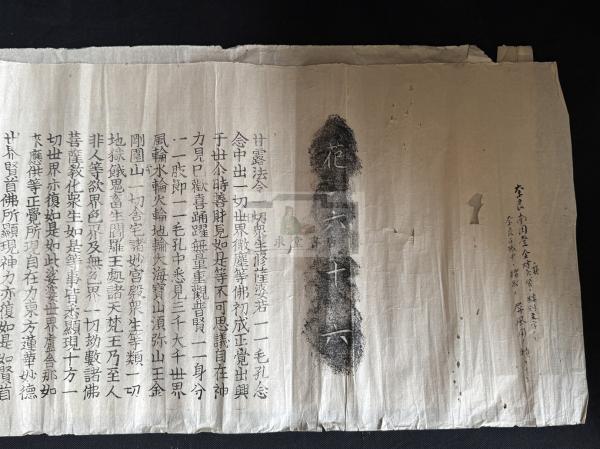 花六十六
甘露法令 切衆生修薩婆若一一毛孔念
念中出一切世界微塵等佛初成正覺出興
于世尒時善財見如是等不可思議自在神
力見已歡喜踊躍無量重觀普賢一一身分
一一肢節一一毛孔中悉見三千大千世界
風輪水輪火輪地輪大海寶山須弥山王金
剛圍山一切舍宅諸妙宮殿衆生等類一切
地獄餓鬼畜生閻羅王處諸天梵王乃至人
非人等欲界色界及無色界一切劫數諸佛
菩薩教化衆生如是等事皆悉顯現十方一
切世界亦復如是如此娑婆世界盧舍那如
来應供等正覺所現自在力東方蓮華妙德
世界賢首佛所顯現神力亦復如是如賢首